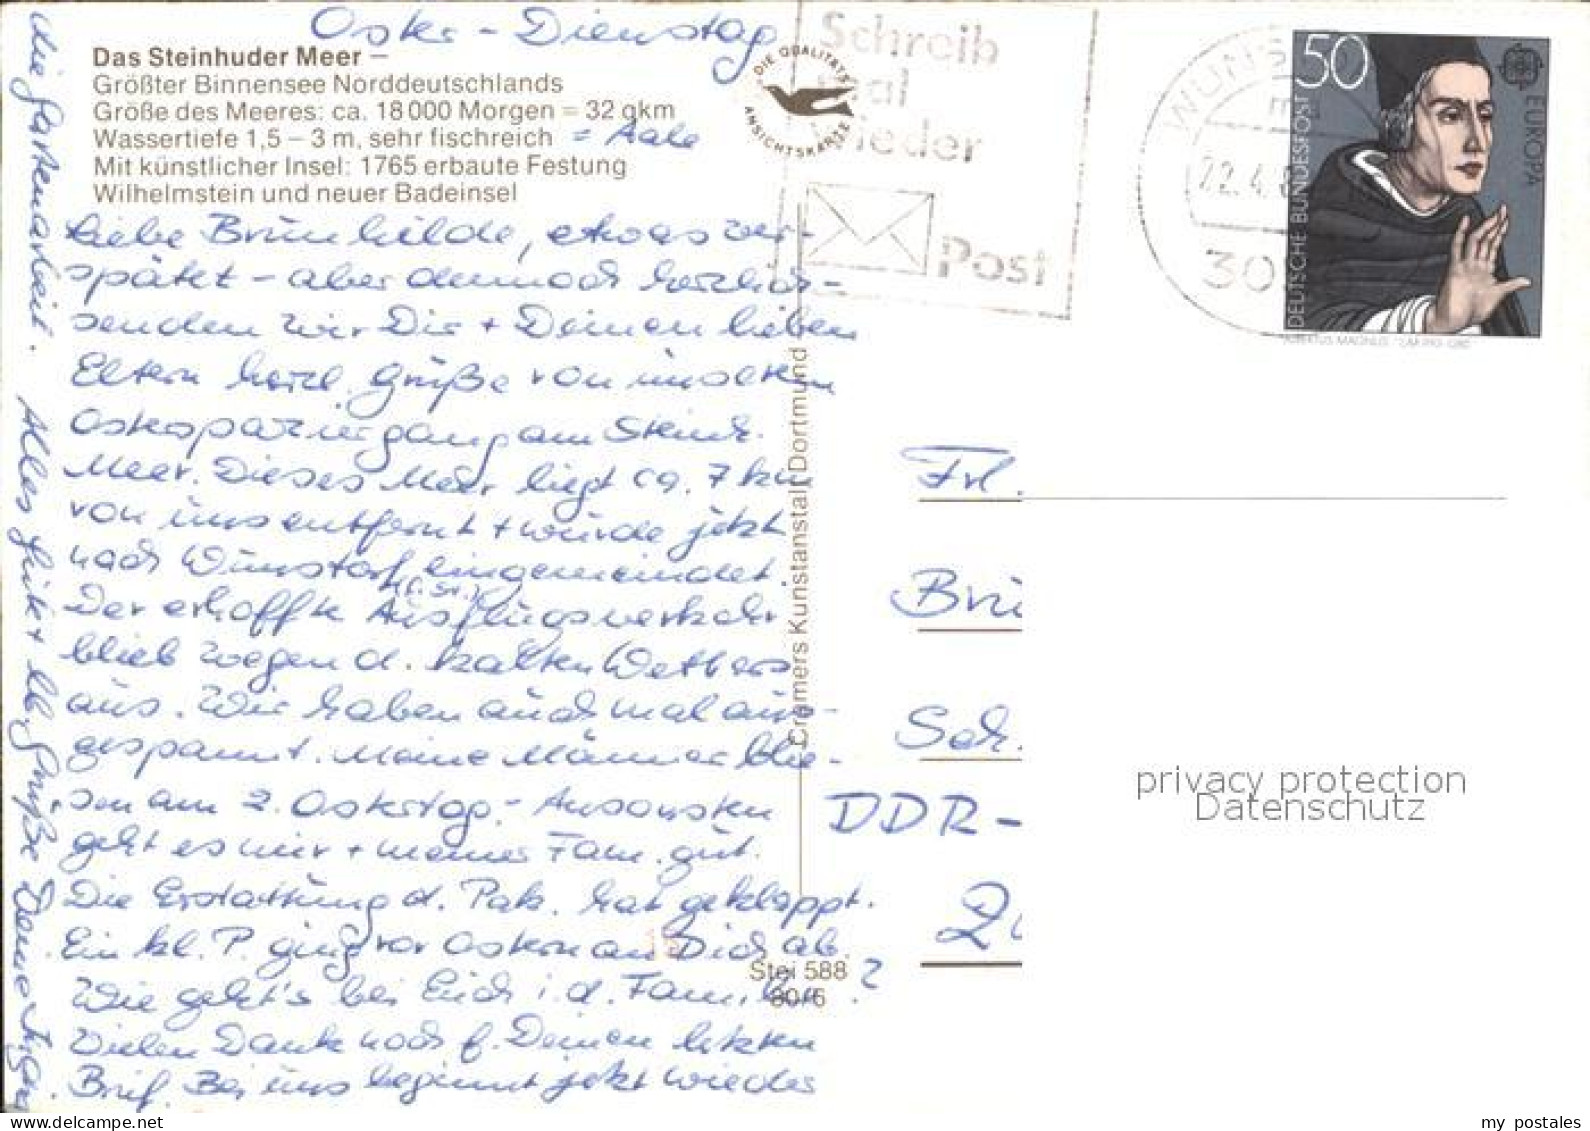 Oster - Dienstag
Das Steinhuder Meer –
Größter Binnensee Norddeutschlands
Größe des Meeres: ca. 18 000 Morgen = 32 qkm
Wassertiefe 1,5 – 3 m, sehr fischreich = Aale
Mit künstlicher Insel: 1765 erbaute Festung
Wilhelmstein und neuer Badeinsel
Liebe Brunhilde, etwas ver-
spätet - aber dennoch herzlich -
senden wir Dir + Deinen lieben
Eltern herzl. Grüße von unserem
Osterspaziergang am Steinh.
Meer. Dieses Meer liegt ca. 7 km
von uns entfernt + wurde jetzt
nach Wunstorf eingemeindet.
Der erhoffte Ausflugsverkehr
blieb wegen d. kalten Wetters
aus. Wir haben auch mal aus-
gespannt. Meine Männer blie-
sen am 2. Ostertag. - Ansonsten
geht es mir + meiner Fam. gut.
Die Erstattung d. Pak. hat geklappt.
Ein kl. P. ging vor Ostern an Dich ab.
Wie geht's bei Euch i. d. Familie?
Vielen Dank noch f. Deinen letzten
Brief. Bei uns beginnt jetzt wieder
die Gartenarbeit. Alles Gute + lb. Grüße Deine
DIE QUALITÄTS
ANSICHTSKARTE
Schreib
mal
wieder
Post
WUNS
22.4.
30
50
DEUTSCHE BUNDESPOST
EUROPA
ALBERTUS MAGNUS
Cramers Kunstanstalt Dortmund
Stei 588
80/6
Frl.
Bru
Sch.
DDR -
privacy protection
Datenschutz
my postales